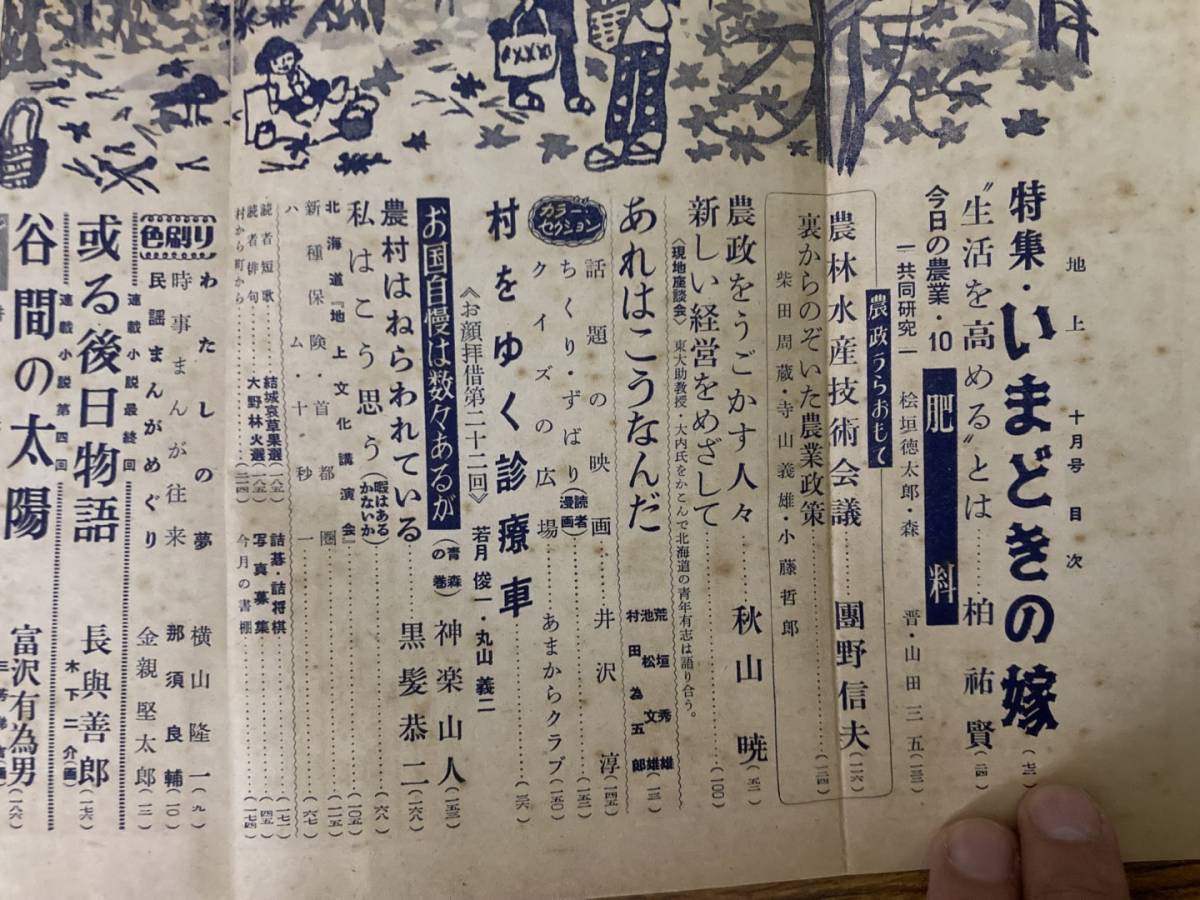 地上 十月号 目次
特集・いまどきの嫁（七二）
“生活を高める”とは……柏祐賢（二四）
今日の農業・10 肥料
―共同研究― 桧垣徳太郎・森晋・山田三五（一三三）
農政うらおもて
農林水産技術会議……團野信夫（一一六）
裏からのぞいた農業政策……（一二四）
柴田周蔵・寺山義雄・小藤哲郎
農政をうごかす人々……秋山暁（五二）
新しい経営をめざして……（一〇〇）
《現地座談会》 東大助教授・大内氏をかこんで北海道の青年有志は語り合う。
あれはこうなんだ 荒垣秀雄 池松文雄 村田為五郎（一三）
カラーセクション
話題の映画 井沢淳（一四五）
ちくり・ずばり（読者漫画）……（一五二）
クイズの広場……あまからクラブ（一五〇）
村をゆく診療車……（三六）
《お顔拝借第二十二回》 若月俊一・丸山義二
お国自慢は数々あるが（青森の巻） 神楽山人（一五三）
農村はねらわれている……黒髪恭二（一六八）
私はこう思う（暇はあるかないか）……（六八）
北海道『地上文化講演会』……（一〇五）
新種保険・首都圏……（一一五）
ハム・十秒一……（六七）
読者短歌……結城哀草果選（一八五） 詰碁・詰将棋……（七一）
読者俳句……大野林火選（一八五） 写真募集……（四五）
村から町から……（一一四） 今月の書棚……（一七四）
色刷り
わたしの夢 横山隆一（九）
時事まんが往来 那須良輔（一〇）
民謡まんがめぐり 金親堅太郎（一二）
連載小説最終回
或る後日物語 長與善郎（一七六）
木下二介（画）
連載小説第四回
谷間の太陽 富沢有為男（一八六）